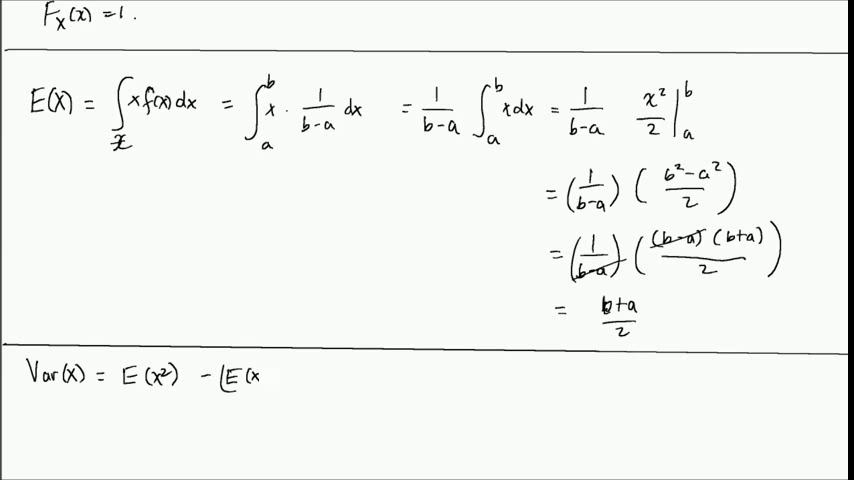 F_X(x) = 1.
E(X) = ∫_𝒳 x f(x) dx = ∫_a^b x · 1/(b-a) dx = 1/(b-a) ∫_a^b x dx = 1/(b-a) x²/2 |_a^b
= (1/(b-a)) ((b²-a²)/2)
= (1/(b-a)) ((b-a)(b+a)/2)
= (b+a)/2
Var(X) = E(X²) - [E(X